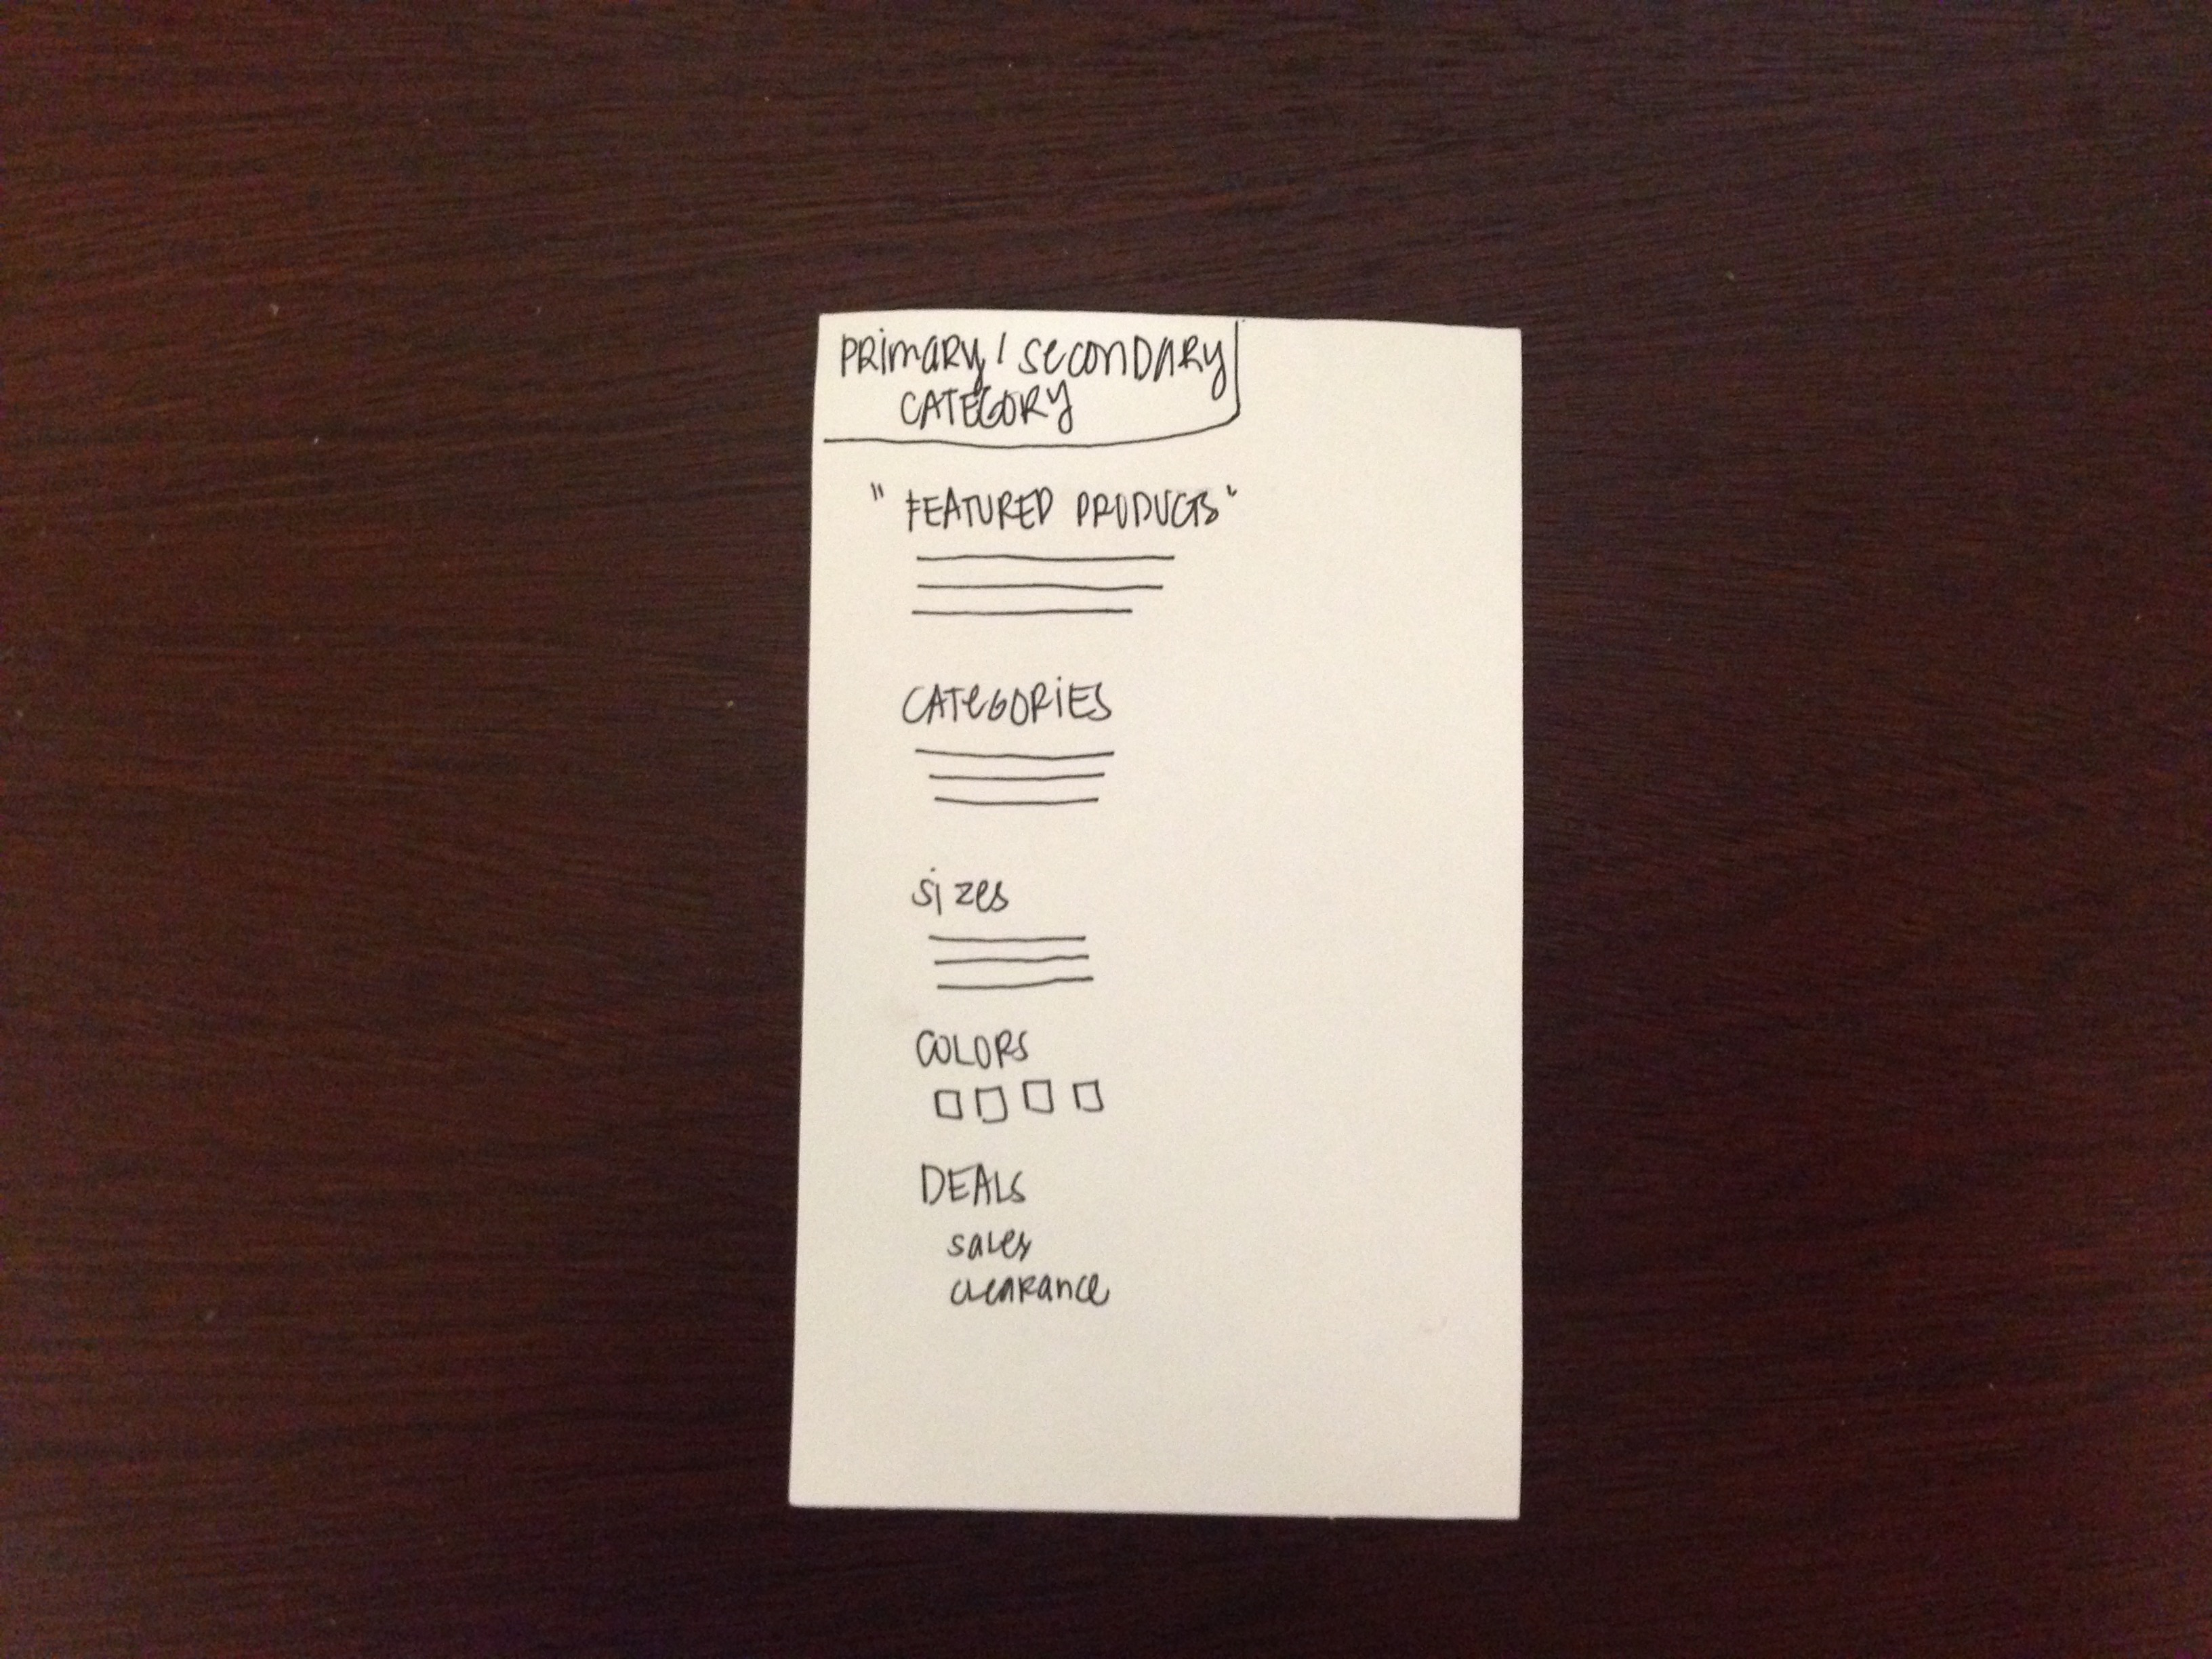 PRIMARY / SECONDARY
CATEGORY
" FEATURED PRODUCTS "
CATEGORIES
sizes
COLORS
DEALS
sales
clearance